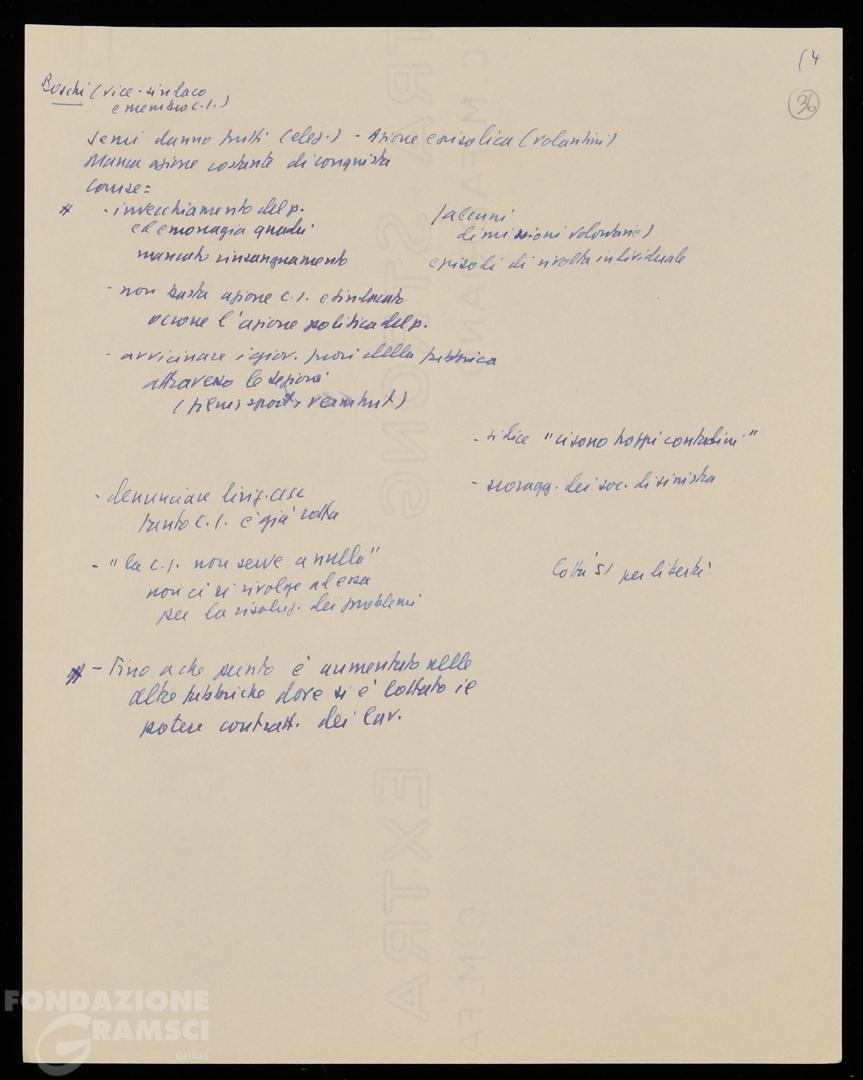 (4
36
Boschi (vice-sindaco
e membro C.I.)
semi danno frutti (elez.) - Azione episodica (volantini)
Manca azione costante di conquista
Cause:
- invecchiamento del p.
ed emorragia quadri
mancato rinsanguamento
(alcuni
dimissioni volontarie)
episodi di rivolta individuale
- non basta azione C.I. e sindacato
occorre l'azione politica del p.
- avvicinare i giov. fuori della fabbrica
attraverso le sezioni
- si dice "ci sono troppi contadini"
- denunciare
tanto C.I. è già rotta
- scoragg. dei soc. di sinistra
- "la C.I. non serve a nulla"
non ci si rivolge ad essa
per la risoluz. dei problemi
per libertà
- Fino a che punto è aumentato nelle
altre fabbriche dove si è lottato il
potere contratt. dei lav.
EXTRA STRONG
EXTRA
FONDAZIONE
GRAMSCI
onlus